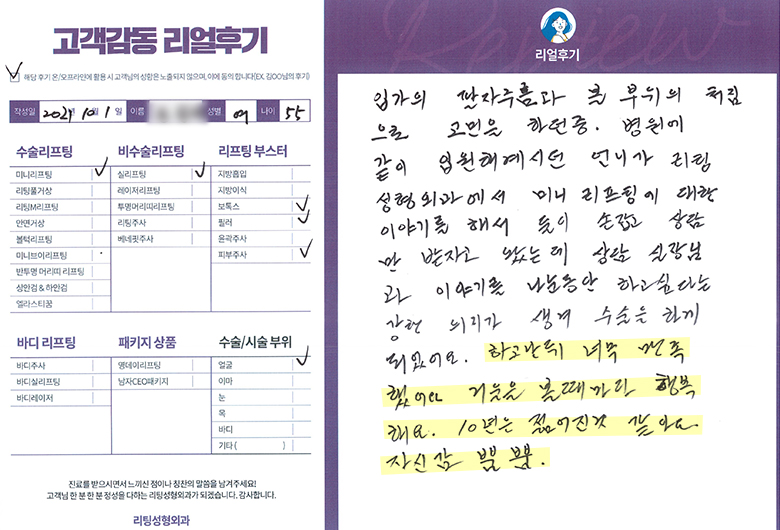 고객감동 리얼후기
해당 후기 온/오프라인에 활용 시 고객님의 성함은 노출되지 않으며, 이에 동의 합니다(EX. 김OO님의 후기)
작성일 2021년 10월 1일 이름 성별 여 나이 55
수술리프팅
미니리프팅
리팅풀거상
리팅M리프팅
안면거상
볼턱리프팅
미니브이리프팅
반투명 머리띠 리프팅
상안검 & 하안검
엘라스티꿈
비수술리프팅
실리프팅
레이저리프팅
투명머리띠리프팅
리팅주사
베네핏주사
리프팅 부스터
지방흡입
지방이식
보톡스
필러
윤곽주사
피부주사
바디 리프팅
바디주사
바디실리프팅
바디레이저
패키지 상품
명데이리프팅
남자CEO패키지
수술/시술 부위
얼굴
이마
눈
목
바디
기타 ( )
진료를 받으시면서 느끼신 점이나 칭찬의 말씀을 남겨주세요!
고객님 한 분 한 분 정성을 다하는 리팅성형외과가 되겠습니다. 감사합니다.
리팅성형외과
Review
리얼후기
입가의 팔자주름과 볼 부위의 처짐
으로 고민을 하던중. 병원에
같이 입원해계시던 언니가 리팅
성형외과에서 미니 리프팅에 대한
이야기를 해서 둘이 손잡고 상담
만 받자고 왔는데 상담 실장님
과 이야기를 나눈동안 하고싶다는
강한 의지가 생겨 수술을 하게
되었어요. 하고난뒤 너무 만족
했어요 거울을 볼때마다 행복
해요. 10년은 젊어진것 같아요.
자신감 뿜 뿜.